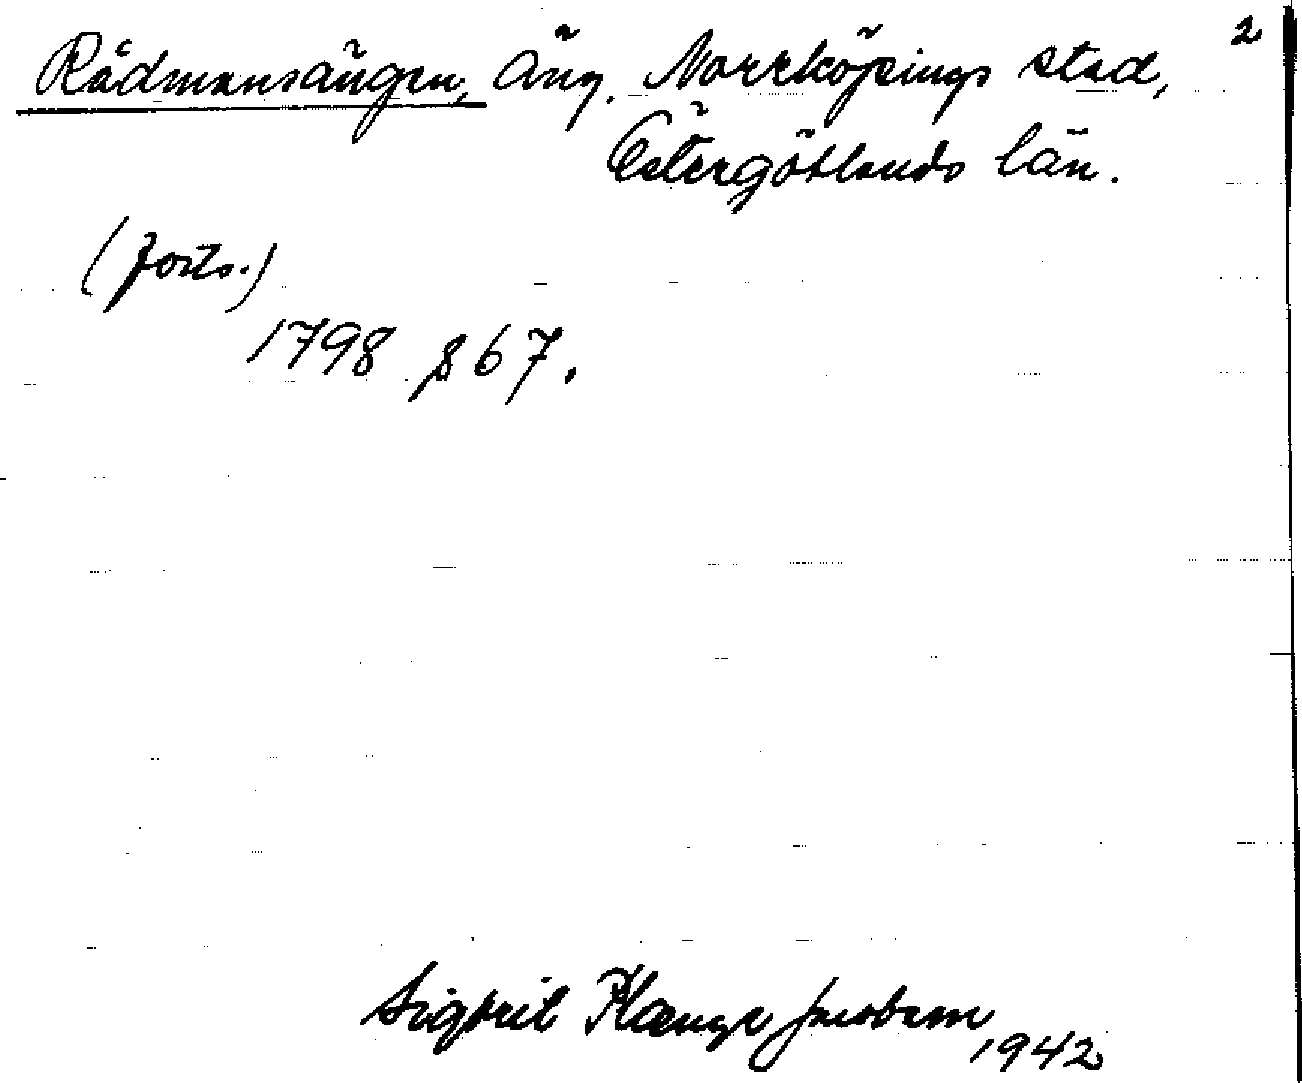 2
Rådmansängen, Äng. Norrköpings stad,
Östergötlands län.
(forts.)
1798 s 67.
Sigbrit Plænge Jacobson
1942